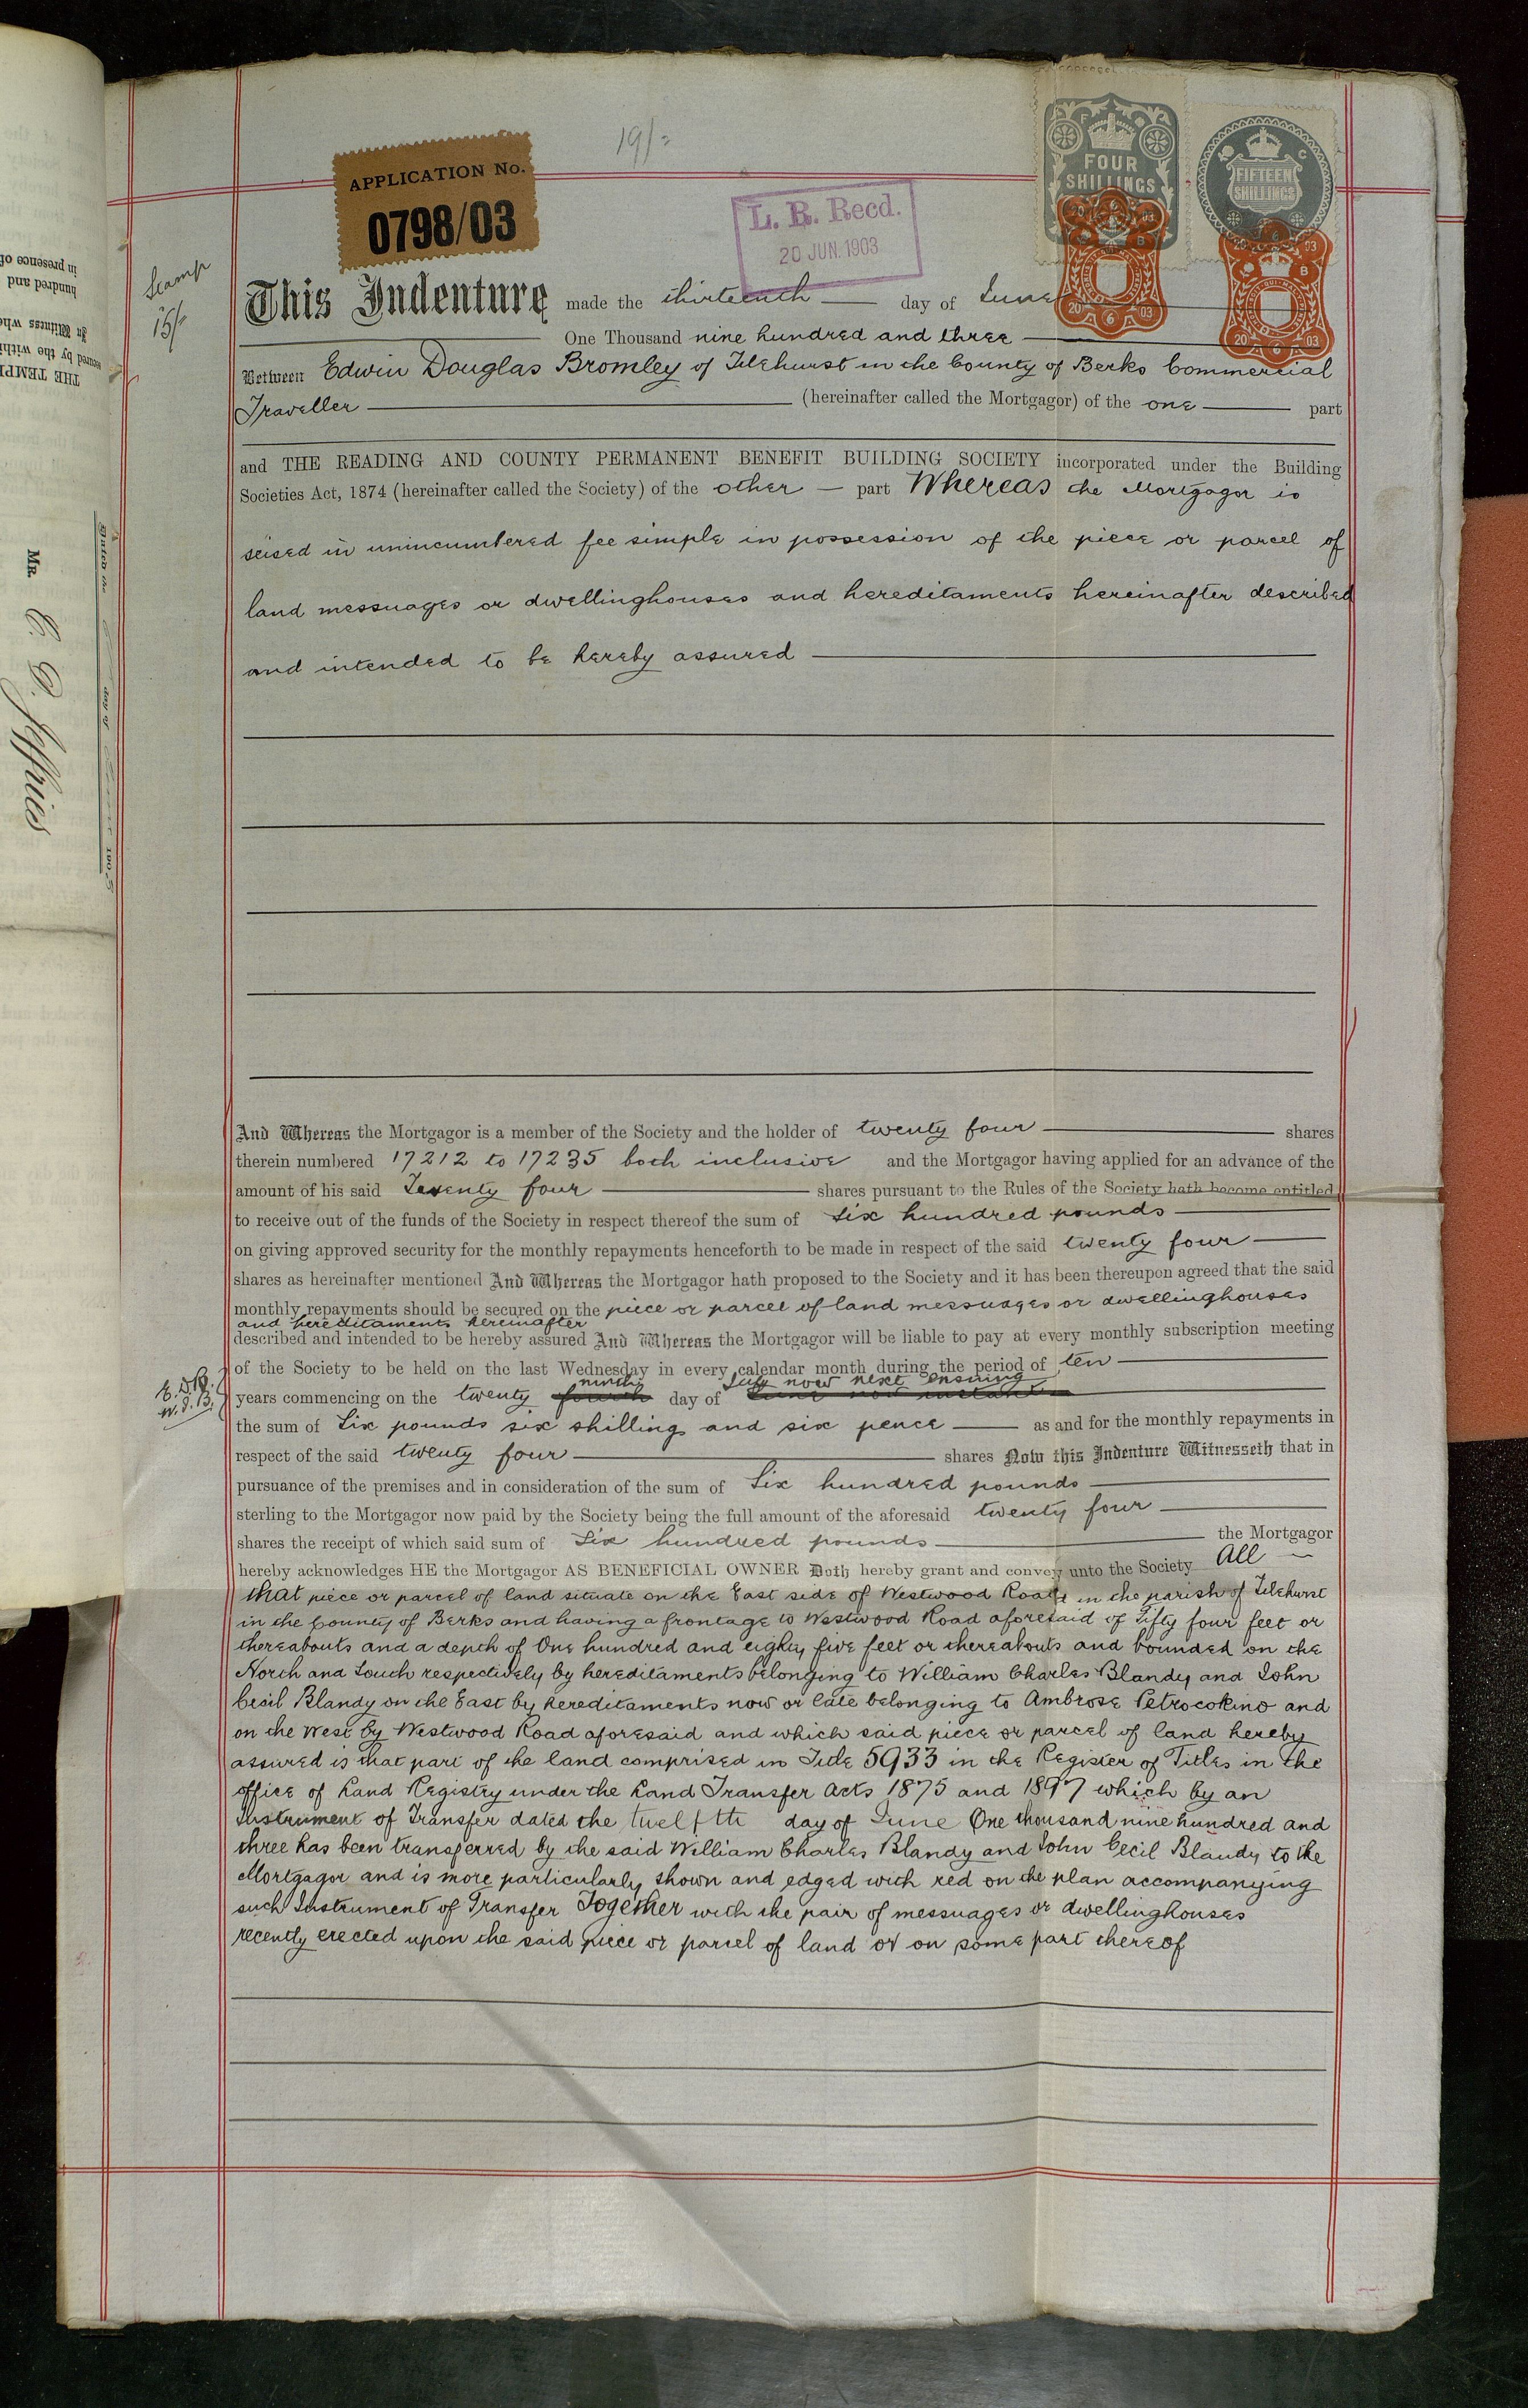 19/=
APPLICATION No.
0798/03
L. R. Recd.
20 JUN. 1903
FOUR
SHILLINGS
FIFTEEN
SHILLINGS
20 03
B
20 6 03
20 6 03
B
20 6 03
Stamp
15/-
This Indenture made the thirteenth day of June
One Thousand nine hundred and three
Between Edwin Douglas Bromley of Tilehurst in the County of Berks Commercial
Traveller (hereinafter called the Mortgagor) of the one part
and THE READING AND COUNTY PERMANENT BENEFIT BUILDING SOCIETY incorporated under the Building
Societies Act, 1874 (hereinafter called the Society) of the other part Whereas the Mortgagor is
seised in unincumbered fee simple in possession of the piece or parcel of
land messuages or dwellinghouses and hereditaments hereinafter described
and intended to be hereby assured
And Whereas the Mortgagor is a member of the Society and the holder of twenty four shares
therein numbered 17212 to 17235 both inclusive and the Mortgagor having applied for an advance of the
amount of his said Twenty four shares pursuant to the Rules of the Society hath become entitled
to receive out of the funds of the Society in respect thereof the sum of Six hundred pounds
on giving approved security for the monthly repayments henceforth to be made in respect of the said twenty four
shares as hereinafter mentioned And Whereas the Mortgagor hath proposed to the Society and it has been thereupon agreed that the said
monthly repayments should be secured on the piece or parcel of land messuages or dwellinghouses
and hereditaments hereinafter
described and intended to be hereby assured And Whereas the Mortgagor will be liable to pay at every monthly subscription meeting
of the Society to be held on the last Wednesday in every calendar month during the period of ten
ninth July now next ensuing
E. D. B.
W. J. B.
years commencing on the twenty fourth day of June now instant
the sum of Six pounds six shillings and six pence as and for the monthly repayments in
respect of the said twenty four shares Now this Indenture Witnesseth that in
pursuance of the premises and in consideration of the sum of Six hundred pounds
sterling to the Mortgagor now paid by the Society being the full amount of the aforesaid twenty four
shares the receipt of which said sum of Six hundred pounds the Mortgagor
hereby acknowledges HE the Mortgagor AS BENEFICIAL OWNER Doth hereby grant and convey unto the Society All
that piece or parcel of land situate on the East side of Westwood Road in the parish of Tilehurst
in the County of Berks and having a frontage to Westwood Road aforesaid of Fifty four feet or
thereabouts and a depth of One hundred and eighty five feet or thereabouts and bounded on the
North and South respectively by hereditaments belonging to William Charles Blandy and John
Cecil Blandy on the East by hereditaments now or late belonging to Ambrose Petrocokino and
on the West by Westwood Road aforesaid and which said piece or parcel of land hereby
assured is that part of the land comprised in Title 5933 in the Register of Titles in the
office of Land Registry under the Land Transfer Acts 1875 and 1897 which by an
Instrument of Transfer dated the twelfth day of June One thousand nine hundred and
three has been transferred by the said William Charles Blandy and John Cecil Blandy to the
Mortgagor and is more particularly shown and edged with red on the plan accompanying
such Instrument of Transfer Together with the pair of messuages or dwellinghouses
recently erected upon the said piece or parcel of land or on some part thereof
in presence of
hundred and
In Witness
by the
THE TEMP
Mr. E. D. Jeffries
day of
190